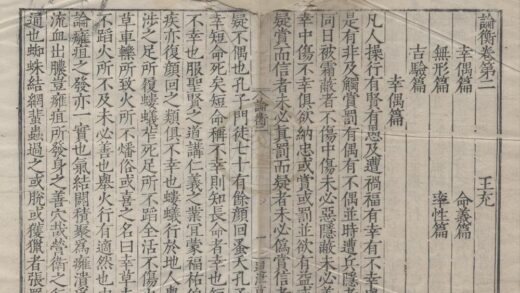 論衡卷第二 王充
幸偶篇 命義篇
無形篇 率性篇
吉驗篇
幸偶篇
凡人操行有賢有愚及遭禍福有幸有不幸
是有非及觸賞罰有偶有不偶並時遭兵隱者
同日被霜蔽者不傷中傷未必惡隱蔽未必善
幸中傷不幸俱欲納忠或賞或罰並欲有益或
疑賞而信者未必真罰而疑者未必偽賞信者
論衡二
疑不偶也孔子門徒七十有餘顏回蚤夭孔子
幸短命死矣短命稱不幸則知長命者幸也短
不幸也服聖賢之道講仁義之業宜蒙福祐伯
疾亦復顏回之類俱不幸也螻蟻行於地人舉
涉之足所履螻蟻苲死足所不蹈全活不傷火
草車轢所致火所不燔俗或喜之名曰幸草夫
不蹈火所不及未必善也舉火行有適然也由
論癰疽之發亦一實也氣結閼積聚為癰潰為
流血出膿豈癰疽所發身之善穴哉營衛之行
通也蜘蛛結網蜚蟲過之或脫或獲獵者張羅